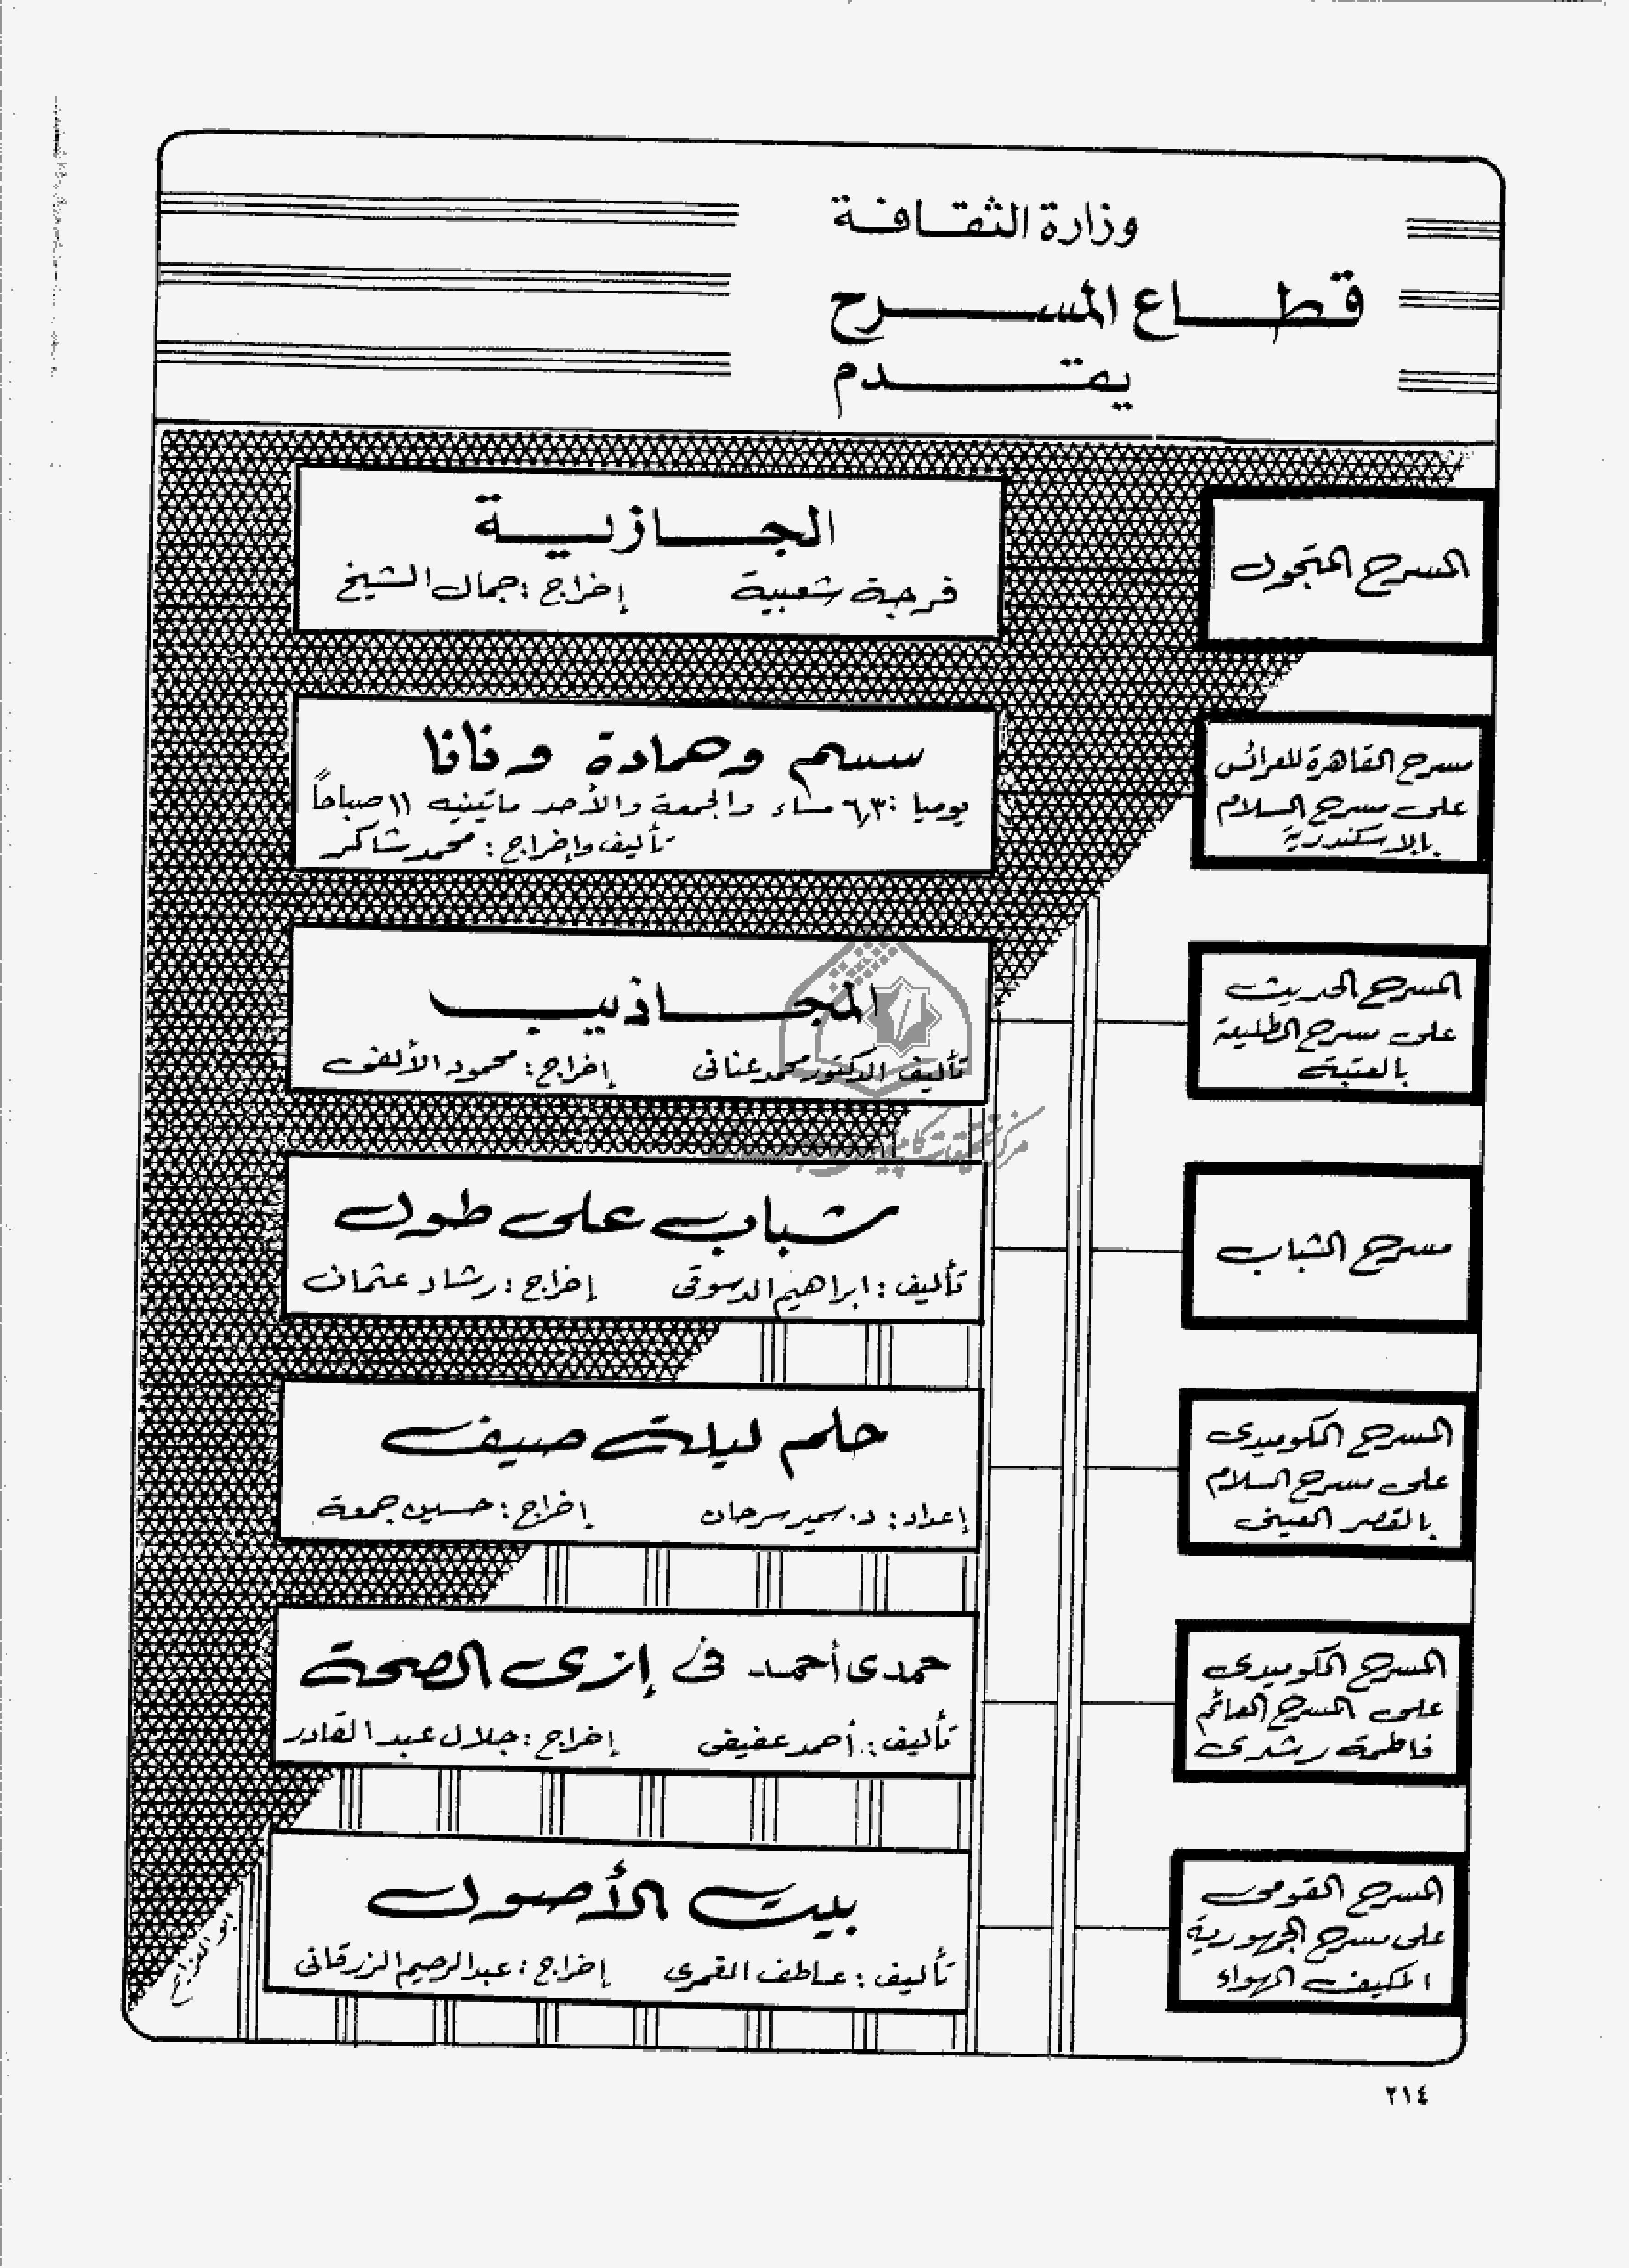 وزارة الثقافة
قطاع المسرح
يقدم
المسرح المتجول
الجازية
فرجة شعبية إخراج : جمال الشيخ
مسرح القاهرة للعرائس
على مسرح السلام
بالاسكندرية
سمسم وحمادة وفافا
يوميا ٦,٣٠ مساء والجمعة والأحد ماتينيه ١١ صباحاً
تأليف وإخراج : محمد شاكر
المسرح الحديث
على مسرح الطليعة
بالعتبة
المجاذيب
تأليف الدكتور محمد عنانى إخراج : محمود الألفى
مسرح الشباب
شباب على طول
تأليف : ابراهيم الدسوقى إخراج : رشاد عثمان
المسرح الكوميدى
على مسرح السلام
بالقصر العينى
حلم ليلة صيف
إعداد : د. سمير سرحان إخراج : حسين جمعة
المسرح الكوميدى
على المسرح العائم
فاطمة رشدى
حمدى أحمد فى إزى الصحة
تأليف : أحمد عفيفى إخراج : جلال عبد القادر
المسرح القومى
على مسرح الجمهورية
المكيف الهواء
بيت الأصول
تأليف : عاطف الغمرى إخراج : عبدالرحيم الزرقانى
٢١٤